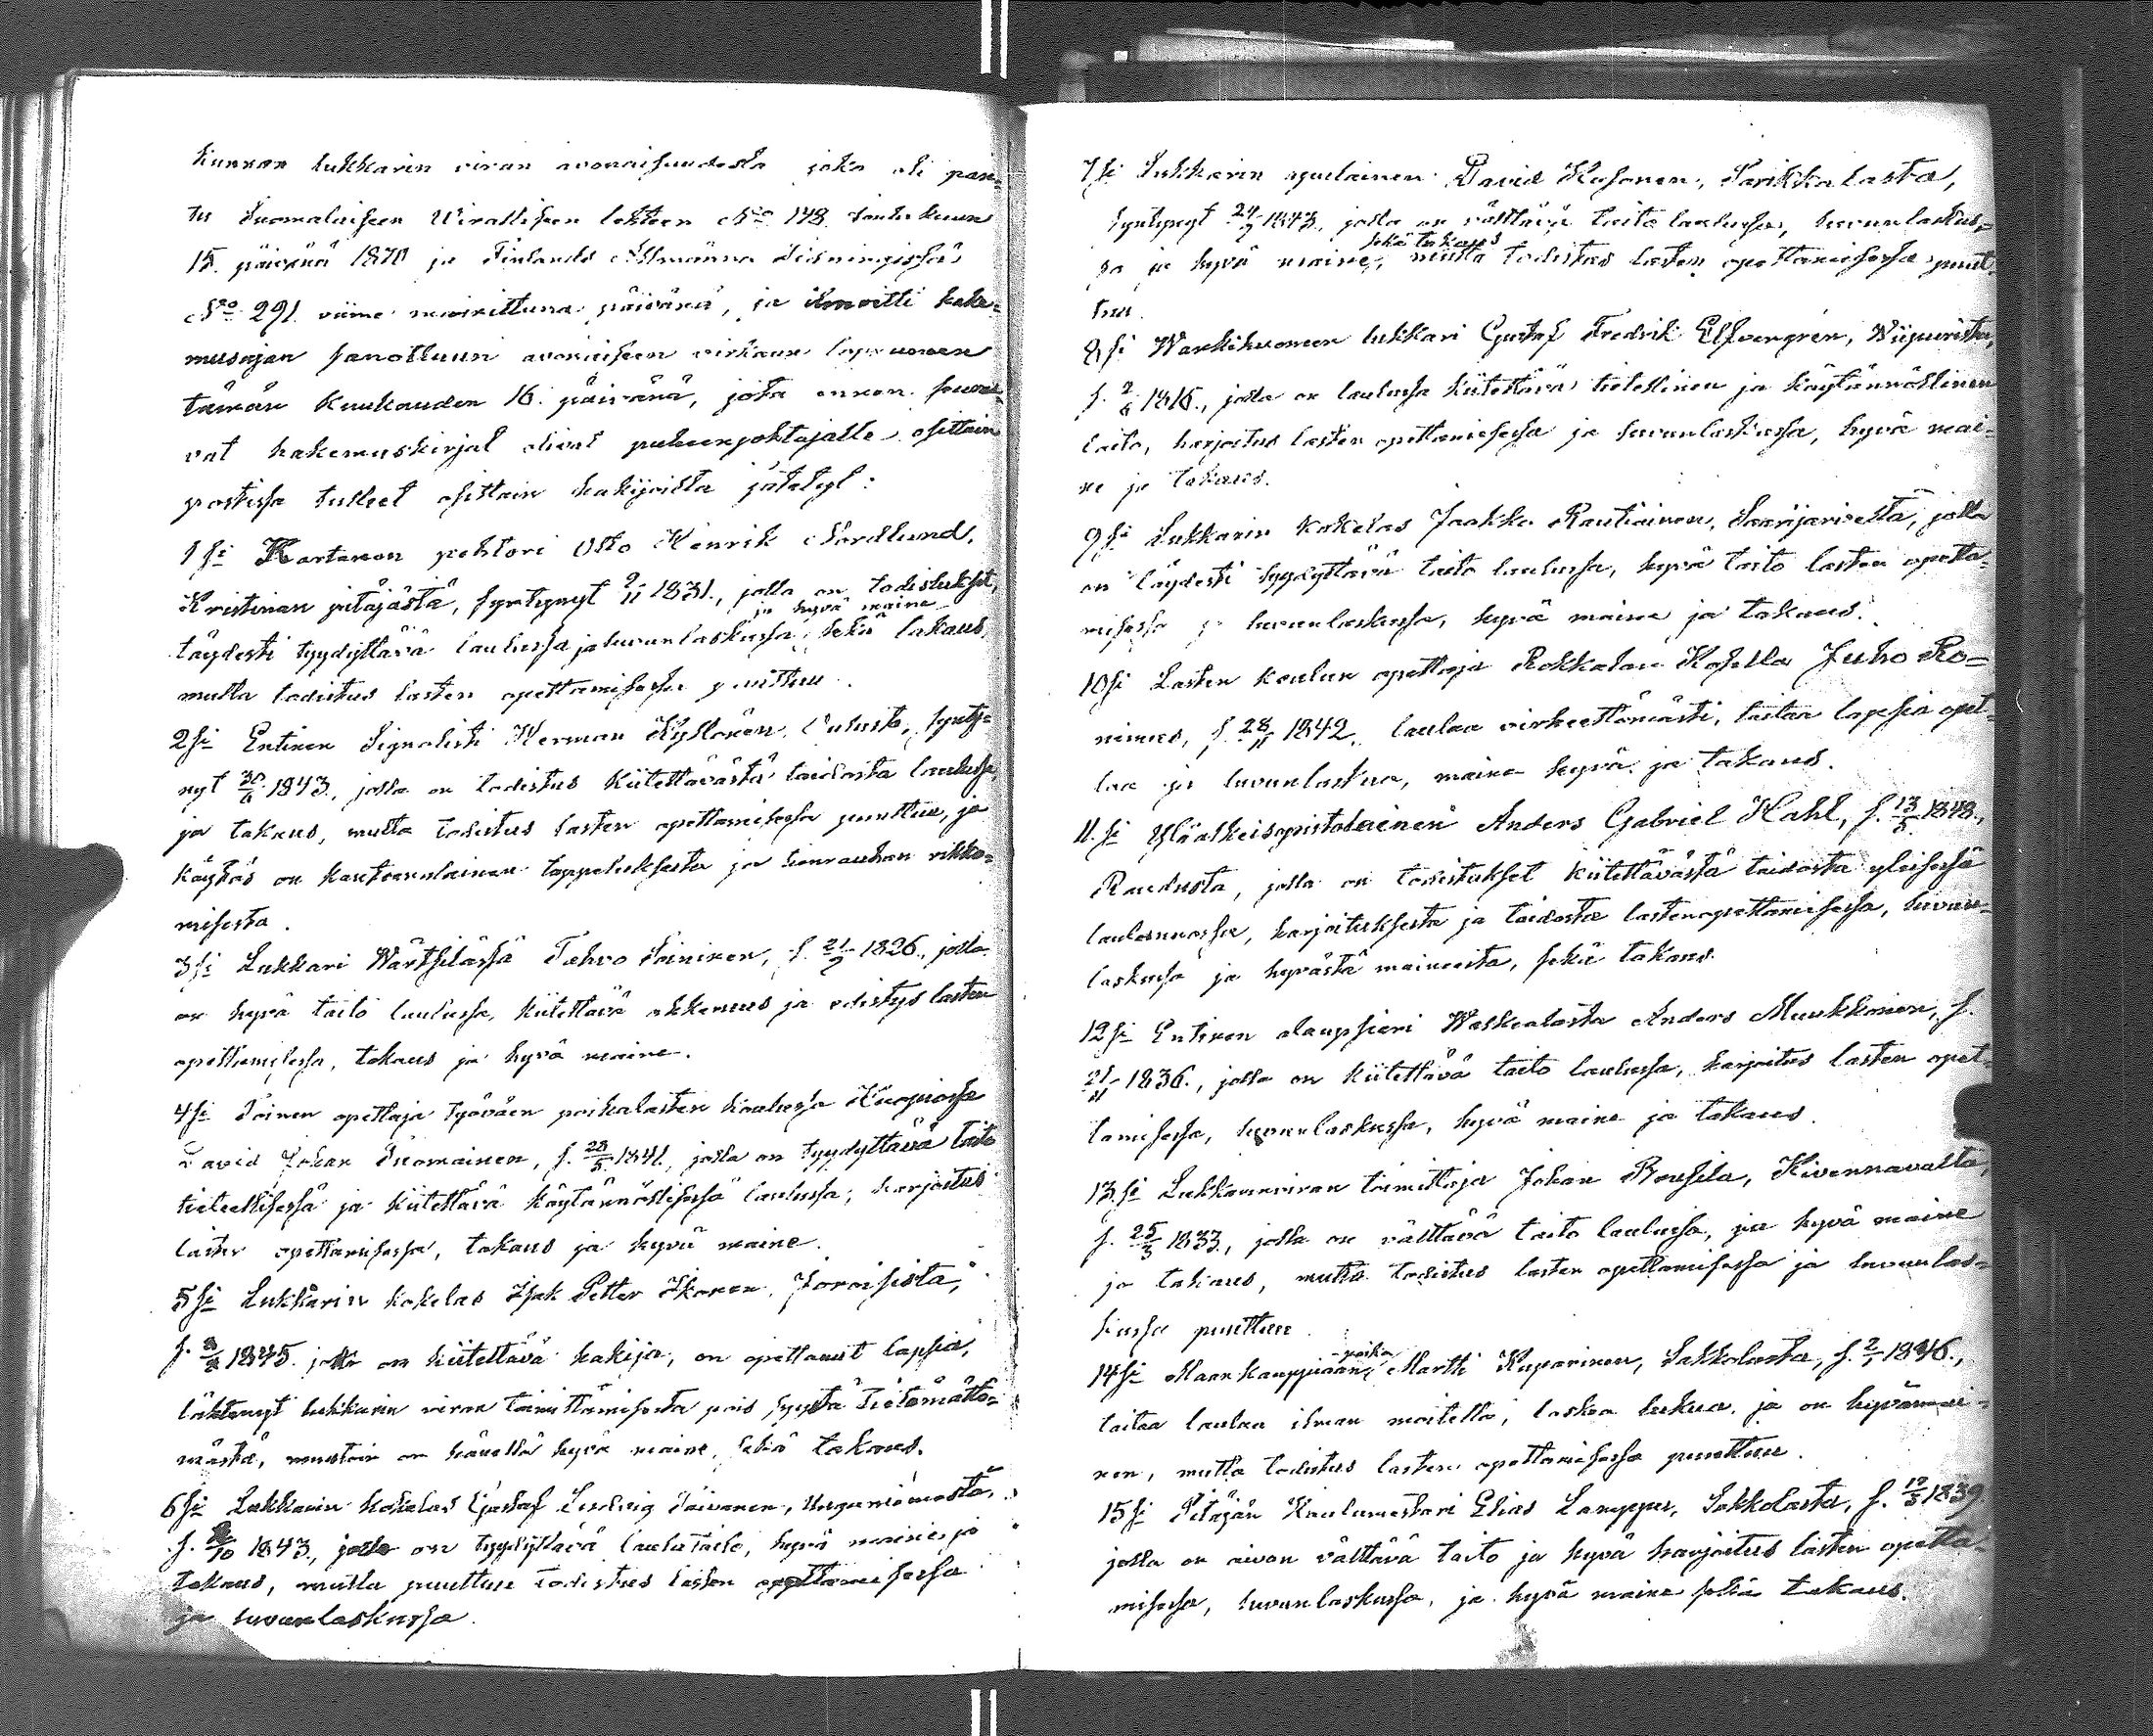 kunnan lukkarin viran avonaisuudesta joka oli pan=
tu Suomalaiseen Wiralliseen lehteen No 148 Joulu kuun
15. päivänä 1870 ja Finlands Allmänna Tidningissä
No 291 viime mainittuna päivänä, ja ilmoitti hake=
musajan sanottuun avonaiseen virkaan loppuneen
tämän Kuukauden 16. päivänä, jota ennen seuraa=
vat hakemuskirjat olivat puheenjohtajalle osittain
postissa tulleet osittain hakijoilta jätetyt:
1si Kartanon pehtori Otto Henrik Nordlund,
Kristinan pitäjästä, syntynyt 9/11 1831., jolla on todistukset,
ja hyvä maine
täydesti tyydyttävä laulussa ja luvunlaskussa, sekä takaus,
mutta todistus lasten opettamisessa puuttuu.
2si Entinen Signalisti Herman Kyllönen, Oulusta, synty=
nyt 30/6 1843., jolla on todistus kiitettävästä taidosta laulussa,
ja takaus, mutta todistus lasten opettamisessa puuttuu, ja
käytös on kanteenalainen tappeluksesta ja kotirauhan rikko=
misesta.
3si Lukkari Wärtsilässä Tahvo Soininen, s. 21/2 1826., jolla
on hyvä taito laulussa, kiitettävä ahkeruus ja edistys lasten
opettamisessa, takaus ja hyvä maine.
4si Toinen opettaja Työväen poikalasten koulussa Kuopiossa
David Johan Tuomainen, s. 28/5 1841., jolla on tyydyttävä taito
tieteellisessä ja kiitettävä käytännöllisessä laulussa, harjoitus
lasten opettamisessa, takaus ja hyvä maine.
5si Lukkarin kokelas Isak Petter Ikonen, Joroisista,
s. 1845. joka on kiitettävä hakija, on opettanut lapsia,
lähtenyt lukkarin viran toimittamisesta pois syystä tietämättö=
mästä, muutoin on hänellä hyvä maine, sekä takaus.
6si Lukkarin kokelas Gustaf Ludvig Toivanen,
s. 1843., jolla on tyydyttävä laulutaito, hyvä maine ja
takaus, mutta puuttuu todistus lasten opettamisessa
ja luvunlaskussa.
7si Lukkarin apulainen David Kosonen, Parikkalasta,
syntynyt 24/7 1843, jolla on välttävä taito laulussa, luvunlaskus=
sekä takaus
sa ja hyvä maine, mutta todistus lasten opettamisessa puut=
tuu.
8si Wankihuoneen lukkari Gustaf Fredrik Elfvengren, Wiipurista,
s. 2/6 1816., jolla on laulussa kiitettävä tieteellinen ja käytännöllinen
taito, harjoitus lasten opettamisessa ja luvunlaskussa, hyvä mai=
ne ja takaus.
9si Lukkarin kokelas Jaakko Rautiainen, Saarijärveltä, jolla
on täydesti tyydyttävä taito laulussa, hyvä taito lasten opetta=
misessa ja luvunlaskussa, hyvä maine ja takaus.
10si Lasten koulun opettaja Rokkalan Kosella Juho Ro=
nimus, s. 28/11 1842. laulaa virheettömästi, taitaa lapsia opet=
taa ja luvunlaskua, maine hyvä ja takaus.
11.si Yläalkeisopistolainen Anders Gabriel Hahl, s. 13/5 1848.,
Raudusta, jolla on todistukset kiitettävästä taidosta yleisessä
laulannossa, harjoituksesta ja taidosta lastenopettamisessa, luvun=
laskussa ja hyvästä maineesta, sekä takaus.
12si Entinen alaupsieri Waskealasta Anders Muukkonen, s.
21/11 1836., jolla on kiitettävä taito laulussa, harjoitus lasten opet=
tamisessa, luvunlaskussa, hyvä maine ja takaus.
13.si Lukkarinviran toimittaja Johan Rousila, Kivennavalta,
s. 25/3 1833., jolla on välttävä taito laulussa, ja hyvä maine
ja takaus, mutta todistus lasten opettamisessa ja luvunlas=
kussa puuttuu.
poika
14si Maan kauppiaan, Martti Kuparinen, Sakkolasta, s. 2/1 1846.,
taitaa laulaa ilman moitetta, laskea lukua, ja on hyvämai=
nen, mutta todistus lasten opettamisessa puuttuu.
15si Pitäjän Koulumestari Elias Lamppu, Sakkolasta, s. 12/3 1839
jolla on aivan välttävä taito ja hyvä harjoitus lasten opetta=
misessa, luvunlaskussa, ja hyvä maine sekä takaus.